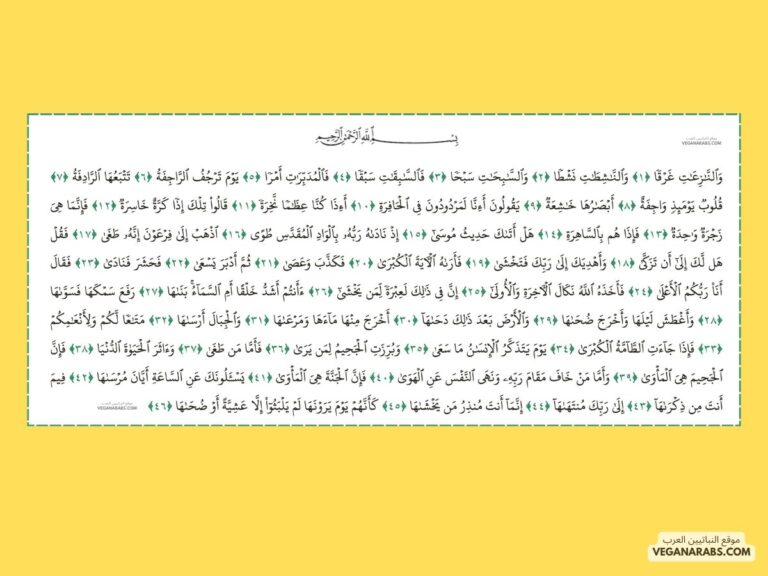 بِسْمِ ٱللَّهِ ٱلرَّحْمَٰنِ ٱلرَّحِيمِ
موقع النباتيين العرب
VEGANARABS.COM
وَٱلنَّٰزِعَٰتِ غَرْقًا ﴿١﴾ وَٱلنَّٰشِطَٰتِ نَشْطًا ﴿٢﴾ وَٱلسَّٰبِحَٰتِ سَبْحًا ﴿٣﴾ فَٱلسَّٰبِقَٰتِ سَبْقًا ﴿٤﴾ فَٱلْمُدَبِّرَٰتِ أَمْرًا ﴿٥﴾ يَوْمَ تَرْجُفُ ٱلرَّاجِفَةُ ﴿٦﴾ تَتْبَعُهَا ٱلرَّادِفَةُ ﴿٧﴾
قُلُوبٌ يَوْمَئِذٍ وَاجِفَةٌ ﴿٨﴾ أَبْصَٰرُهَا خَٰشِعَةٌ ﴿٩﴾ يَقُولُونَ أَءِنَّا لَمَرْدُودُونَ فِي ٱلْحَافِرَةِ ﴿١٠﴾ أَءِذَا كُنَّا عِظَٰمًا نَّخِرَةً ﴿١١﴾ قَالُوا۟ تِلْكَ إِذًا كَرَّةٌ خَاسِرَةٌ ﴿١٢﴾ فَإِنَّمَا هِىَ
زَجْرَةٌ وَٰحِدَةٌ ﴿١٣﴾ فَإِذَا هُم بِٱلسَّاهِرَةِ ﴿١٤﴾ هَلْ أَتَىٰكَ حَدِيثُ مُوسَىٰٓ ﴿١٥﴾ إِذْ نَادَىٰهُ رَبُّهُۥ بِٱلْوَادِ ٱلْمُقَدَّسِ طُوًى ﴿١٦﴾ ٱذْهَبْ إِلَىٰ فِرْعَوْنَ إِنَّهُۥ طَغَىٰ ﴿١٧﴾ فَقُلْ
هَل لَّكَ إِلَىٰٓ أَن تَزَكَّىٰ ﴿١٨﴾ وَأَهْدِيَكَ إِلَىٰ رَبِّكَ فَتَخْشَىٰ ﴿١٩﴾ فَأَرَىٰهُ ٱلْءَايَةَ ٱلْكُبْرَىٰ ﴿٢٠﴾ فَكَذَّبَ وَعَصَىٰ ﴿٢١﴾ ثُمَّ أَدْبَرَ يَسْعَىٰ ﴿٢٢﴾ فَحَشَرَ فَنَادَىٰ ﴿٢٣﴾ فَقَالَ
أَنَا۠ رَبُّكُمُ ٱلْأَعْلَىٰ ﴿٢٤﴾ فَأَخَذَهُ ٱللَّهُ نَكَالَ ٱلْءَاخِرَةِ وَٱلْأُولَىٰٓ ﴿٢٥﴾ إِنَّ فِى ذَٰلِكَ لَعِبْرَةً لِّمَن يَخْشَىٰٓ ﴿٢٦﴾ ءَأَنتُمْ أَشَدُّ خَلْقًا أَمِ ٱلسَّمَآءُ ۚ بَنَىٰهَا ﴿٢٧﴾ رَفَعَ سَمْكَهَا فَسَوَّىٰهَا
﴿٢٨﴾ وَأَغْطَشَ لَيْلَهَا وَأَخْرَجَ ضُحَىٰهَا ﴿٢٩﴾ وَٱلْأَرْضَ بَعْدَ ذَٰلِكَ دَحَىٰهَآ ﴿٣٠﴾ أَخْرَجَ مِنْهَا مَآءَهَا وَمَرْعَىٰهَا ﴿٣١﴾ وَٱلْجِبَالَ أَرْسَىٰهَا ﴿٣٢﴾ مَتَٰعًا لَّكُمْ وَلِأَنْعَٰمِكُمْ
﴿٣٣﴾ فَإِذَا جَآءَتِ ٱلطَّآمَّةُ ٱلْكُبْرَىٰ ﴿٣٤﴾ يَوْمَ يَتَذَكَّرُ ٱلْإِنسَٰنُ مَا سَعَىٰ ﴿٣٥﴾ وَبُرِّزَتِ ٱلْجَحِيمُ لِمَن يَرَىٰ ﴿٣٦﴾ فَأَمَّا مَن طَغَىٰ ﴿٣٧﴾ وَءَاثَرَ ٱلْحَيَوٰةَ ٱلدُّنْيَا ﴿٣٨﴾ فَإِنَّ
ٱلْجَحِيمَ هِىَ ٱلْمَأْوَىٰ ﴿٣٩﴾ وَأَمَّا مَنْ خَافَ مَقَامَ رَبِّهِۦ وَنَهَى ٱلنَّفْسَ عَنِ ٱلْهَوَىٰ ﴿٤٠﴾ فَإِنَّ ٱلْجَنَّةَ هِىَ ٱلْمَأْوَىٰ ﴿٤١﴾ يَسْـَٔلُونَكَ عَنِ ٱلسَّاعَةِ أَيَّانَ مُرْسَىٰهَا ﴿٤٢﴾ فِيمَ
أَنتَ مِن ذِكْرَىٰهَآ ﴿٤٣﴾ إِلَىٰ رَبِّكَ مُنتَهَىٰهَآ ﴿٤٤﴾ إِنَّمَآ أَنتَ مُنذِرُ مَن يَخْشَىٰهَا ﴿٤٥﴾ كَأَنَّهُمْ يَوْمَ يَرَوْنَهَا لَمْ يَلْبَثُوٓا۟ إِلَّا عَشِيَّةً أَوْ ضُحَىٰهَا ﴿٤٦﴾
موقع النباتيين العرب
VEGANARABS.COM
موقع النباتيين العرب
VEGANARABS.COM